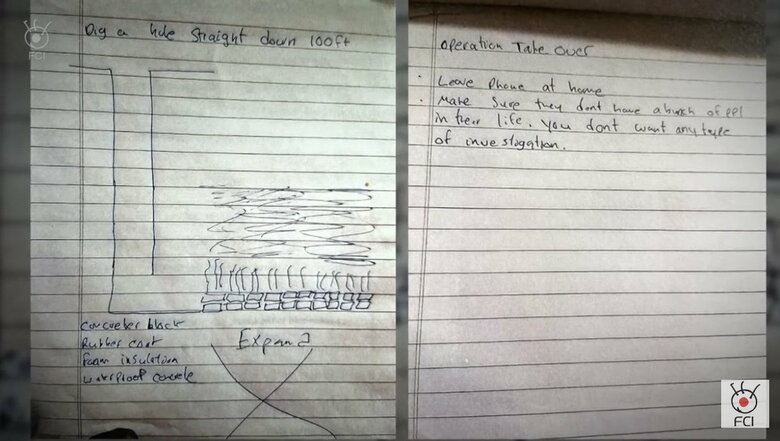 FCI
Dig a hole straight down 100ft
Concreter block
Rubber coat
Foam insulation
waterproof concrete
Expand
Operation Take Over
· Leave Phone at home
· Make Sure they dont have a bunch of ppl
in their life. You dont want any type
of investigation.
FCI